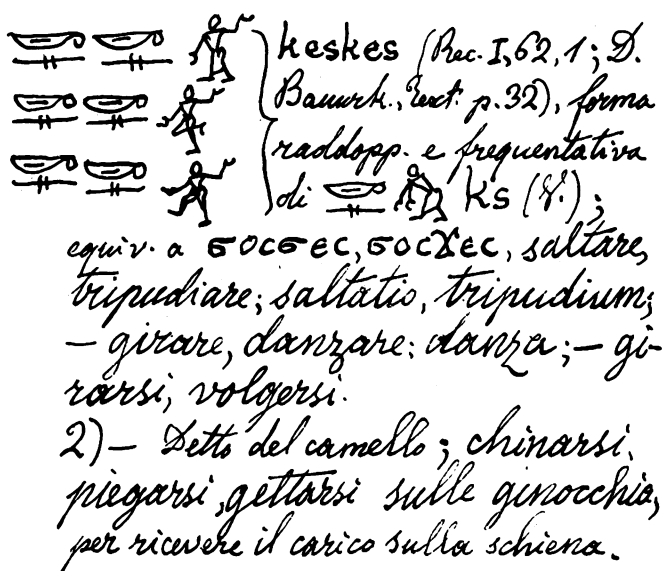 keskes (Rec. I, 62, 1; D.
Bauurk., Text. p. 32), forma
raddopp. e frequentativa
di 𓎡𓊃 ks (V.);
equiv. a ϭⲟⲥϭⲉⲥ, ϭⲟⲥϫⲉⲥ, saltare,
tripudiare; saltatio, tripudium;
— girare, danzare: danza; — gi-
rarsi, volgersi.
2) — Detto del camello; chinarsi,
piegarsi, gettarsi sulle ginocchia,
per ricevere il carico sulla schiena.